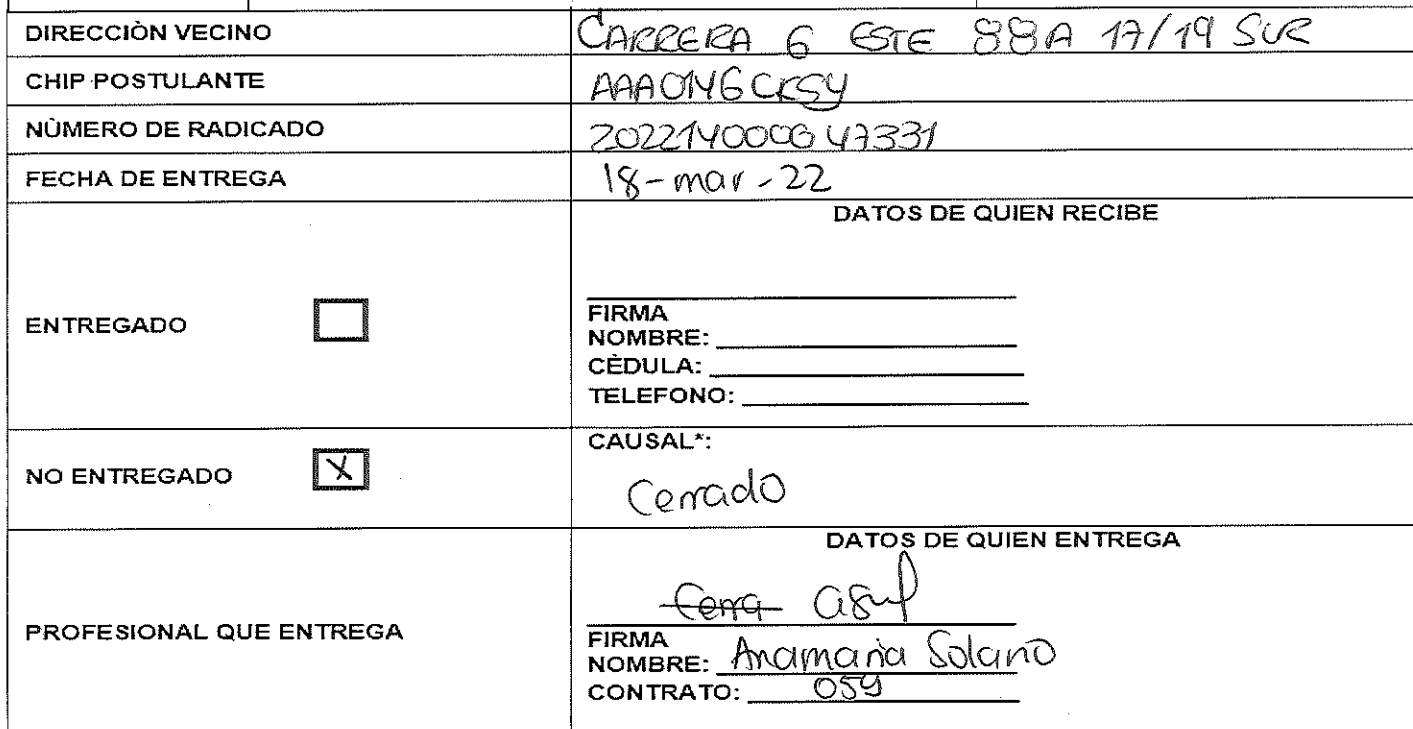 DIRECCIÒN VECINO CARRERA 6 ESTE 88A 17/19 SUR
CHIP POSTULANTE AAA0146CKSY
NÙMERO DE RADICADO 202214000047331
FECHA DE ENTREGA 18-mar-22
DATOS DE QUIEN RECIBE
ENTREGADO
FIRMA
NOMBRE:
CÈDULA:
TELEFONO:
NO ENTREGADO X
CAUSAL*:
Cerrado
DATOS DE QUIEN ENTREGA
Cerra
PROFESIONAL QUE ENTREGA
FIRMA
NOMBRE: Anamaria Solano
CONTRATO: 059